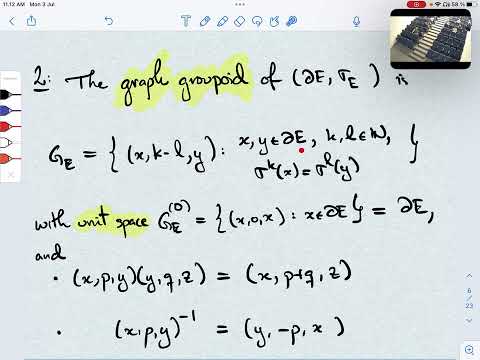 11:12 AM Mon 3 Jul
58 %
2: The graph groupoid of (∂E, σ_E) is
G_E = { (x, k-l, y) : x, y ∈ ∂E, k, l ∈ ℕ, σ^k(x) = σ^l(y) }
with unit space G_E^(0) = { (x, 0, x) : x ∈ ∂E } = ∂E,
and
• (x, p, y)(y, q, z) = (x, p+q, z)
• (x, p, y)^-1 = (y, -p, x)
6
23